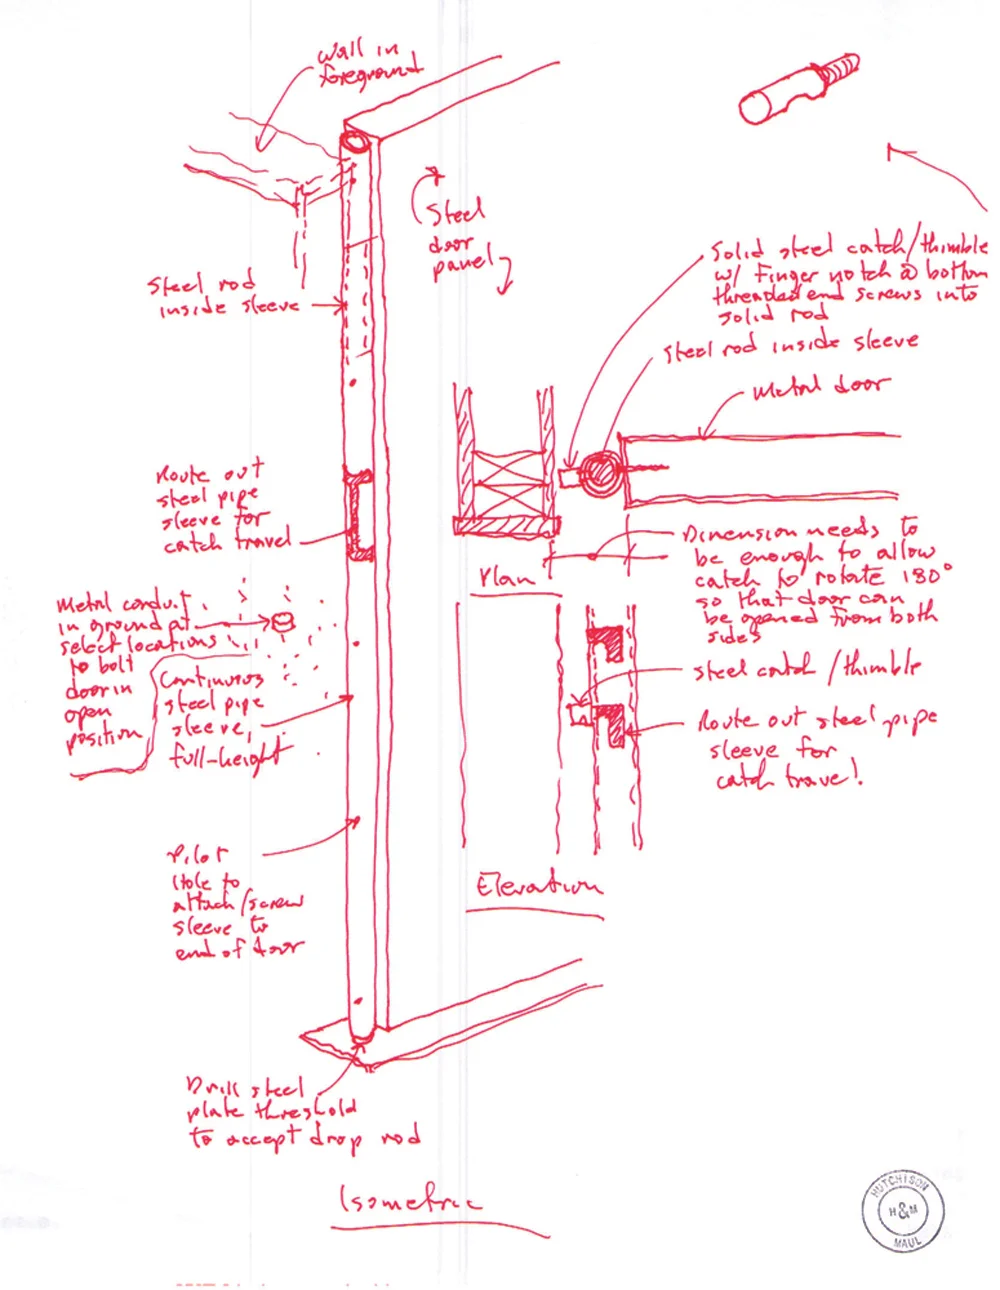 Wall in
foreground
Steel
door
panel
Steel rod
inside sleeve
Solid steel catch/thimble
w/ Finger notch @ bottom
threaded end screws into
solid rod
Steel rod inside sleeve
Metal door
Route out
steel pipe
sleeve for
catch travel
Plan
Dimension needs to
be enough to allow
catch to rotate 180°
so that door can
be opened from both
sides
Metal conduit
in ground at
select locations
to bolt
door in
open
position
Continuous
steel pipe
sleeve,
full-height
steel catch/thimble
Route out steel pipe
sleeve for
catch travel.
Pilot
Hole to
attach/screw
sleeve to
end of door
Elevation
Drill steel
plate threshold
to accept drop rod
Isometric
HUTCHISON
H&M
MAUL